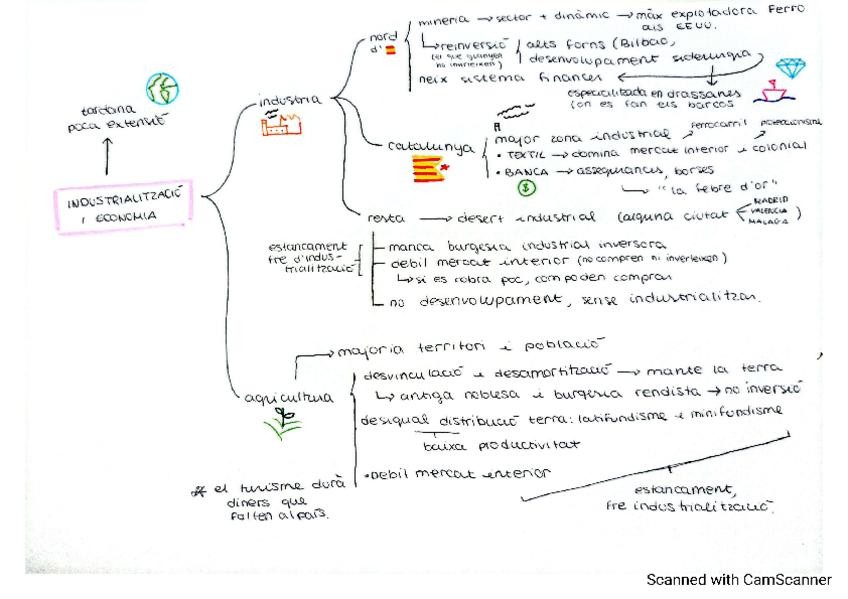 mineria → sector + dinàmic → màx explotadora Ferro
als EEUU.
nord
d'
↳ reinversió
(el que guanyen
no inverteixen)
alts forns (Bilbao,
desenvolupament siderúrgia
neix sistema financer
especialitzada en drassanes
(on es fan els barcos
tardana
poca extensió
industria
INDUSTRIALITZACIÓ
I ECONOMIA
catalunya
major zona industrial
ferrocarril
proteccionisme
• TÈXTIL → domina mercat interior i colonial
• BANCA → assegurances, borses
$
↳ "la febre d'or"
resta → desert industrial (alguna ciutat
MADRID
VALENCIA
MALAGA
)
estancament
fre d'indus-
trialització
manca burgesia industrial inversora
debil mercat interior (no compren ni inverteixen)
↳ si es cobra poc, com poden comprar
no desenvolupament, sense industrialitzar.
majoria territori i població
agricultura
desvinculació i desamortització → mante la terra
↳ antiga noblesa i burgesia rendista → no inversió
desigual distribució terra: latifundisme i minifundisme
baixa productivitat
• Debil mercat interior
* el turisme durà
diners que
falten al país.
estancament,
fre industrialització.
Scanned with CamScanner